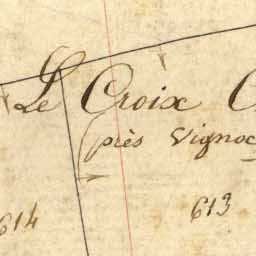 Le Croix
(près Vignoc
613
614